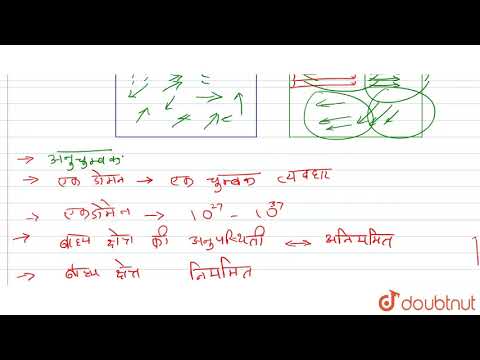 → अनुचुम्बक:
→ एक डोमेन → एक चुम्बक व्यवहार
→ एकडोमेन → 10²⁷ - 10³⁷
→ बाध्य क्षेत्र की अनुपस्थिती ↔ अनियमित
→ बाध्य क्षेत्र नियमित
doubtnut